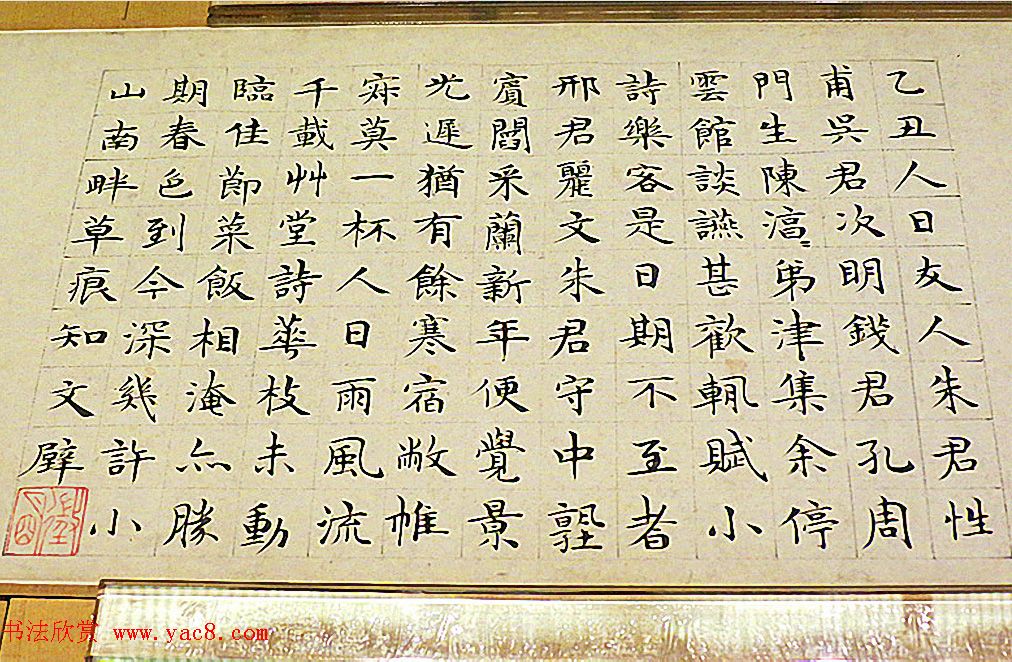 乙丑人日友人朱君性
甫吳君次明錢君孔周
門生陳湻弟津集余停
雲館談讌甚歡輒賦小
詩樂客是日期不至者
邢君麗文朱君守中塾
賓閻采蘭新年便覺景
光遲猶有餘寒宿敝帷
寂莫一杯人日雨風流
千載艸堂詩華枝未動
臨佳節菜飯相淹亦勝
期春色到今深幾許小
山南畔草痕知文壁
书法欣赏 www.yac8.com